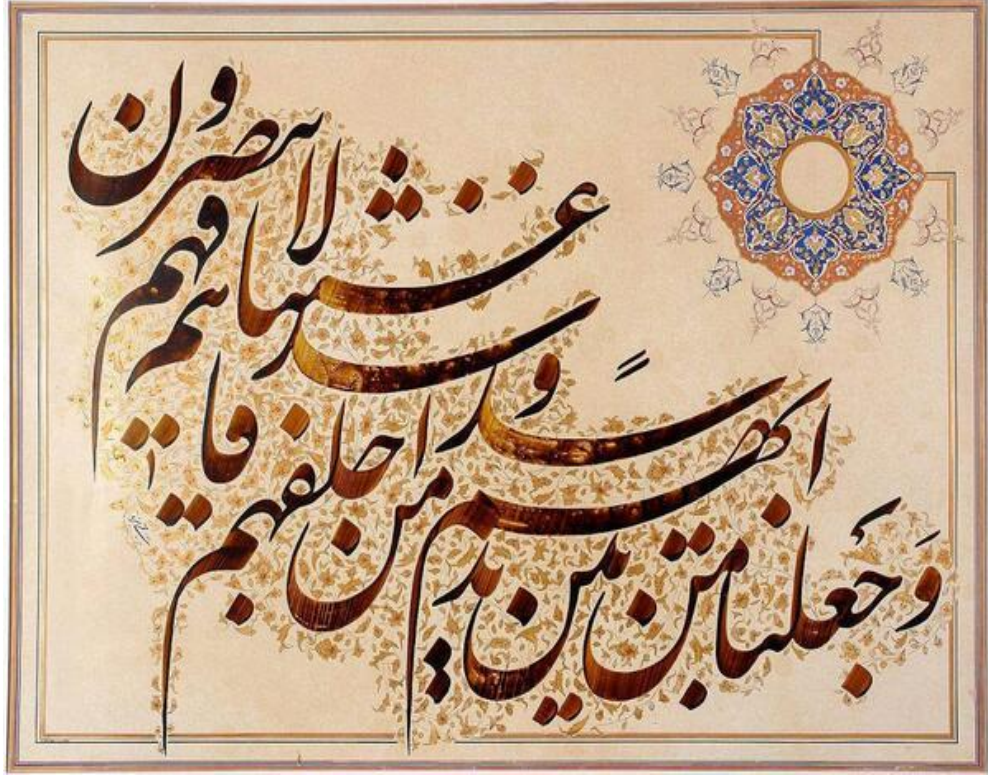 وَجعلنا من بین ایدیهم سداً
و من خلفهم سدا
فاغشیناهم فهم لا یبصرون